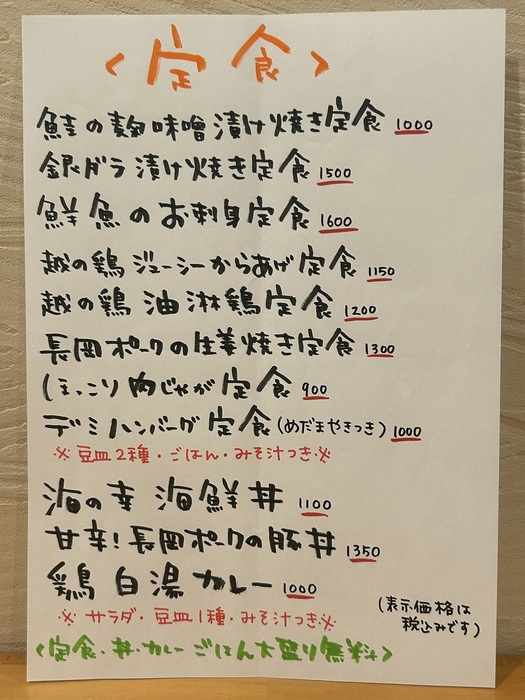 〈定食〉
鮭の麹味噌漬け焼き定食 1000
銀ダラ漬け焼き定食 1500
鮮魚のお刺身定食 1600
越の鶏ジューシーからあげ定食 1150
越の鶏 油淋鶏定食 1200
長岡ポークの生姜焼き定食 1300
ほっこり肉じゃが定食 900
デミハンバーグ定食(めだまやきつき) 1000
※豆皿2種・ごはん・みそ汁つき※
海の幸 海鮮丼 1100
甘辛!長岡ポークの豚丼 1350
鶏白湯カレー 1000
※サラダ・豆皿1種・みそ汁つき※
(表示価格は
税込みです)
〈定食・丼・カレー ごはん大盛り無料〉